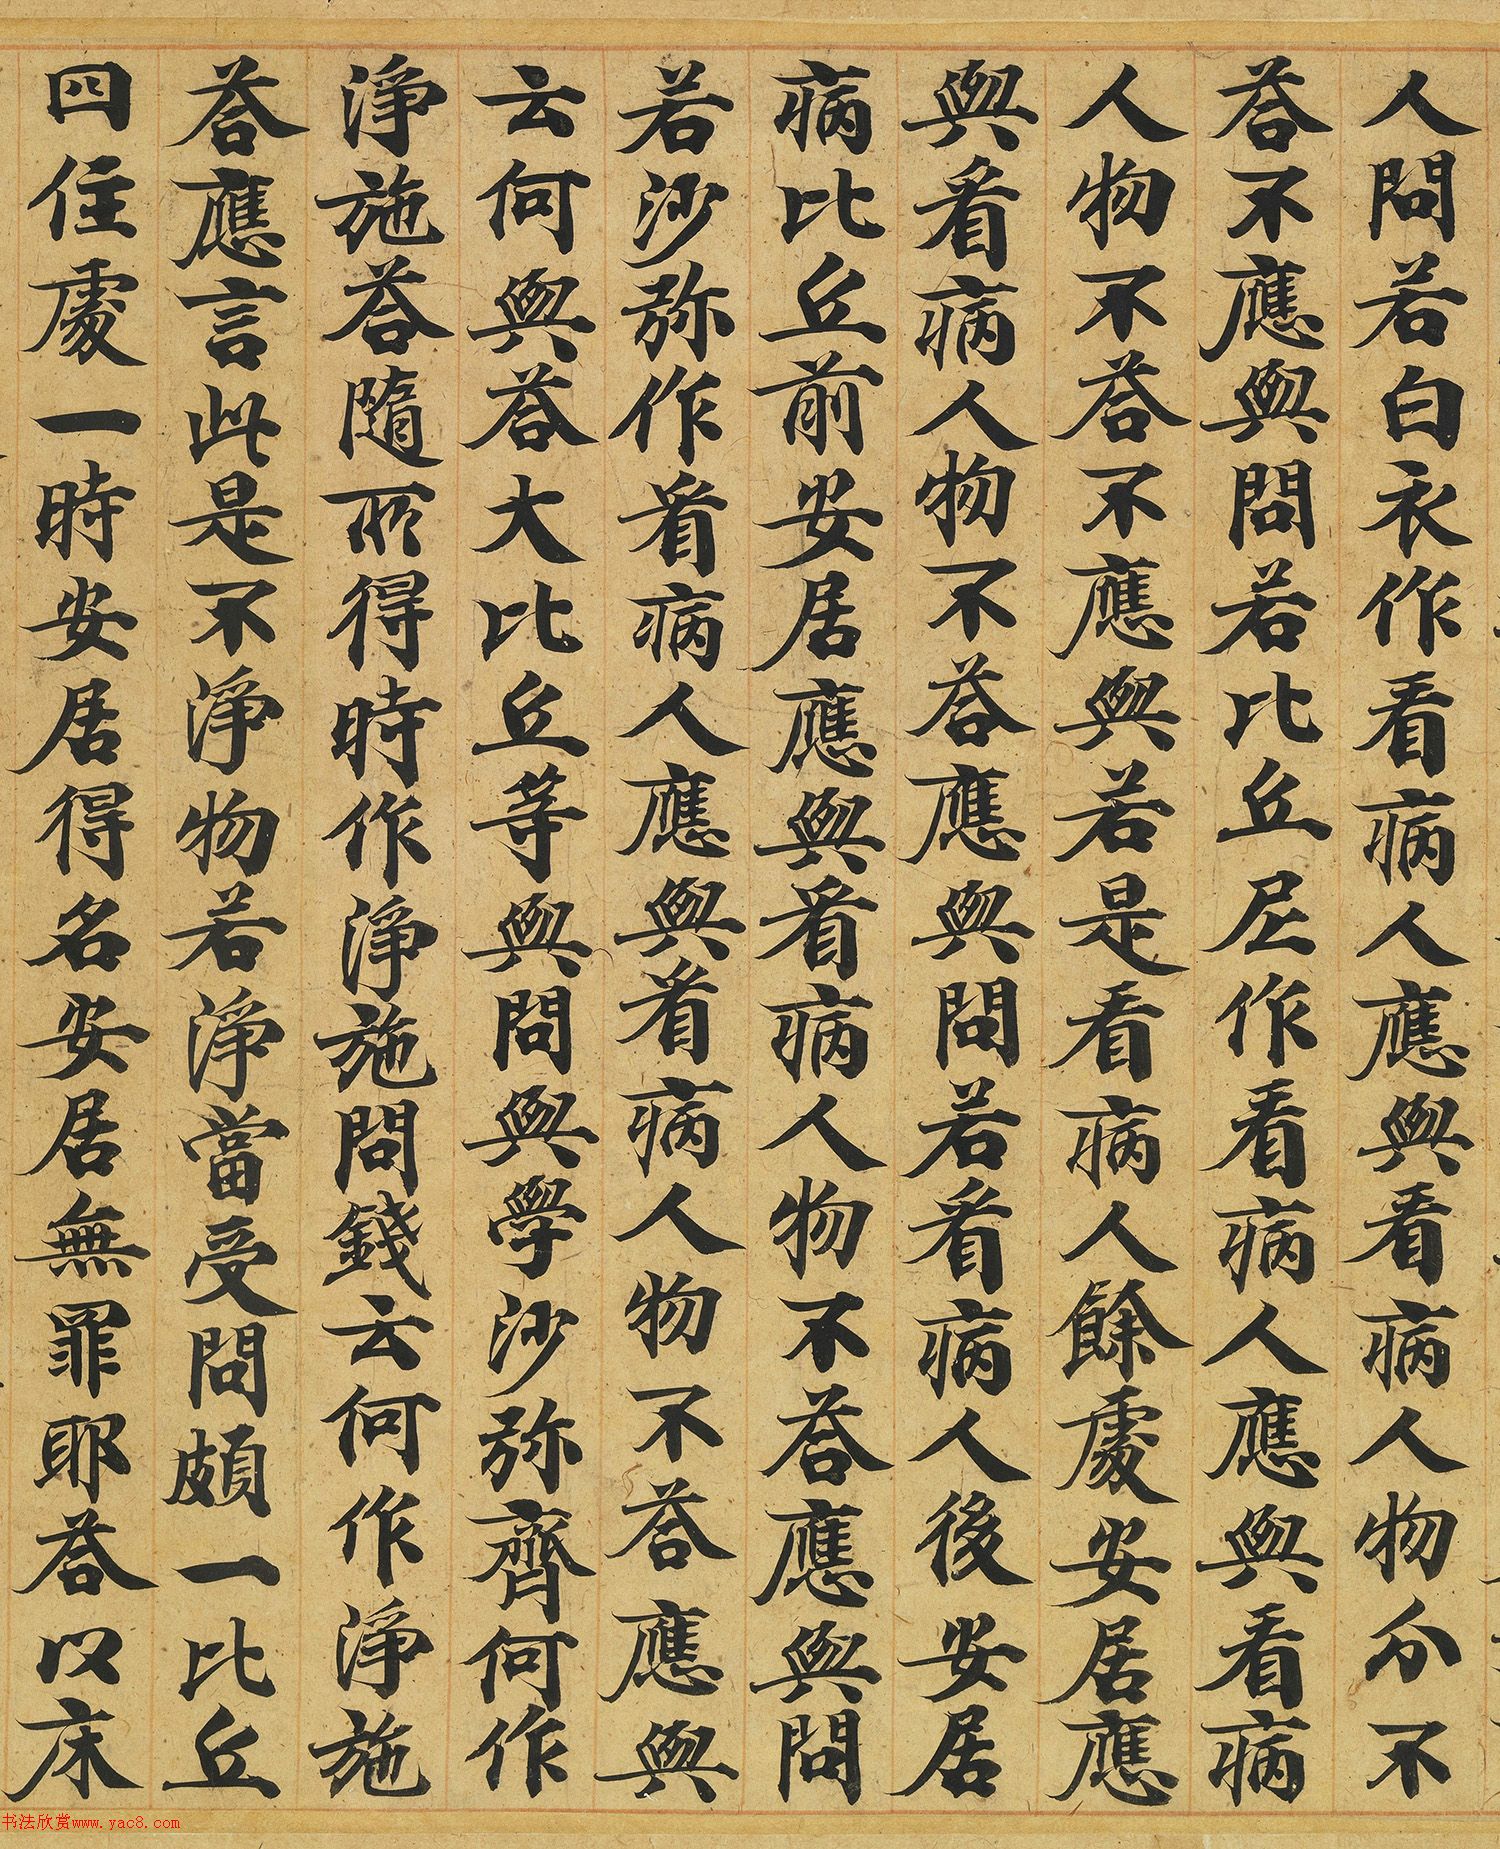 人問若白衣作看病人應與看病人物分不
荅不應與問若比丘尼作看病人應與看病
人物不荅不應與若是看病人餘處安居應
與看病人物不荅應與問若看病人後安居
病比丘前安居應與看病人物不荅應與問
若沙弥作看病人應與看病人物不荅應與
云何與荅大比丘等與問與學沙弥齊何作
淨施荅隨所得時作淨施問錢云何作淨施
荅應言此是不淨物若淨當受問頗一比丘
四住處一時安居得名安居無罪耶荅以床
书法欣赏www.yac8.com